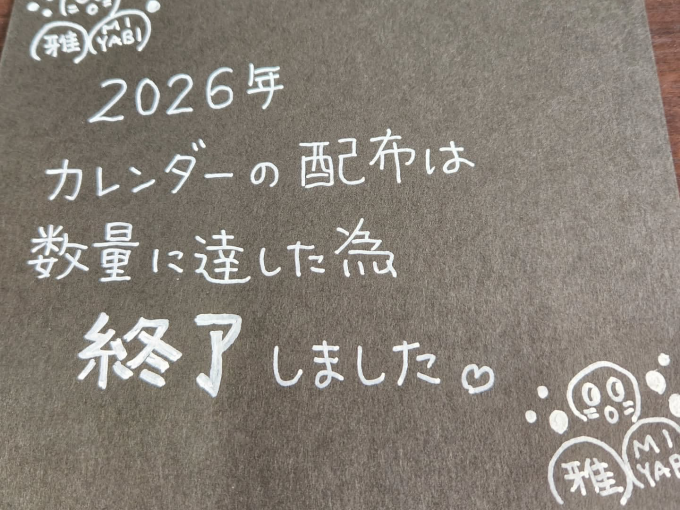 雅 MI
YABI
2026年
カレンダーの配布は
数量に達した為
終了しました♡
雅 MI
YABI